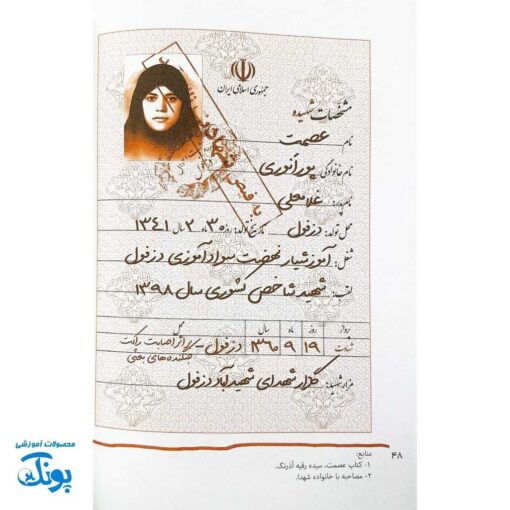 جمهوری اسلامی ایران
مشخصات شهیده
نام عصمت
نام خانوادگی پورانوری
نام پدر: غلامعلی
محل تولد: دزفول تاریخ تولد: روز ۳۰ ماه ۲ سال ۱۳۴۱
شغل: آموزشیار نهضت سوادآموزی دزفول
لقب: شهید شاخص کشوری سال ۱۳۹۸
پرواز روز ماه سال محل
شهادت ۱۹ ۹ ۱۳۶۰ دزفول - بر اثر اصابت راکت
جنگنده‌های بعثی
مزار شهیده: گلزار شهدای شهیدآباد دزفول
۴۸
منابع:
۱- کتاب عصمت، سیده رقیه آذرنگ.
۲- مصاحبه با خانواده شهدا.
محصولات آموزشی
پونک